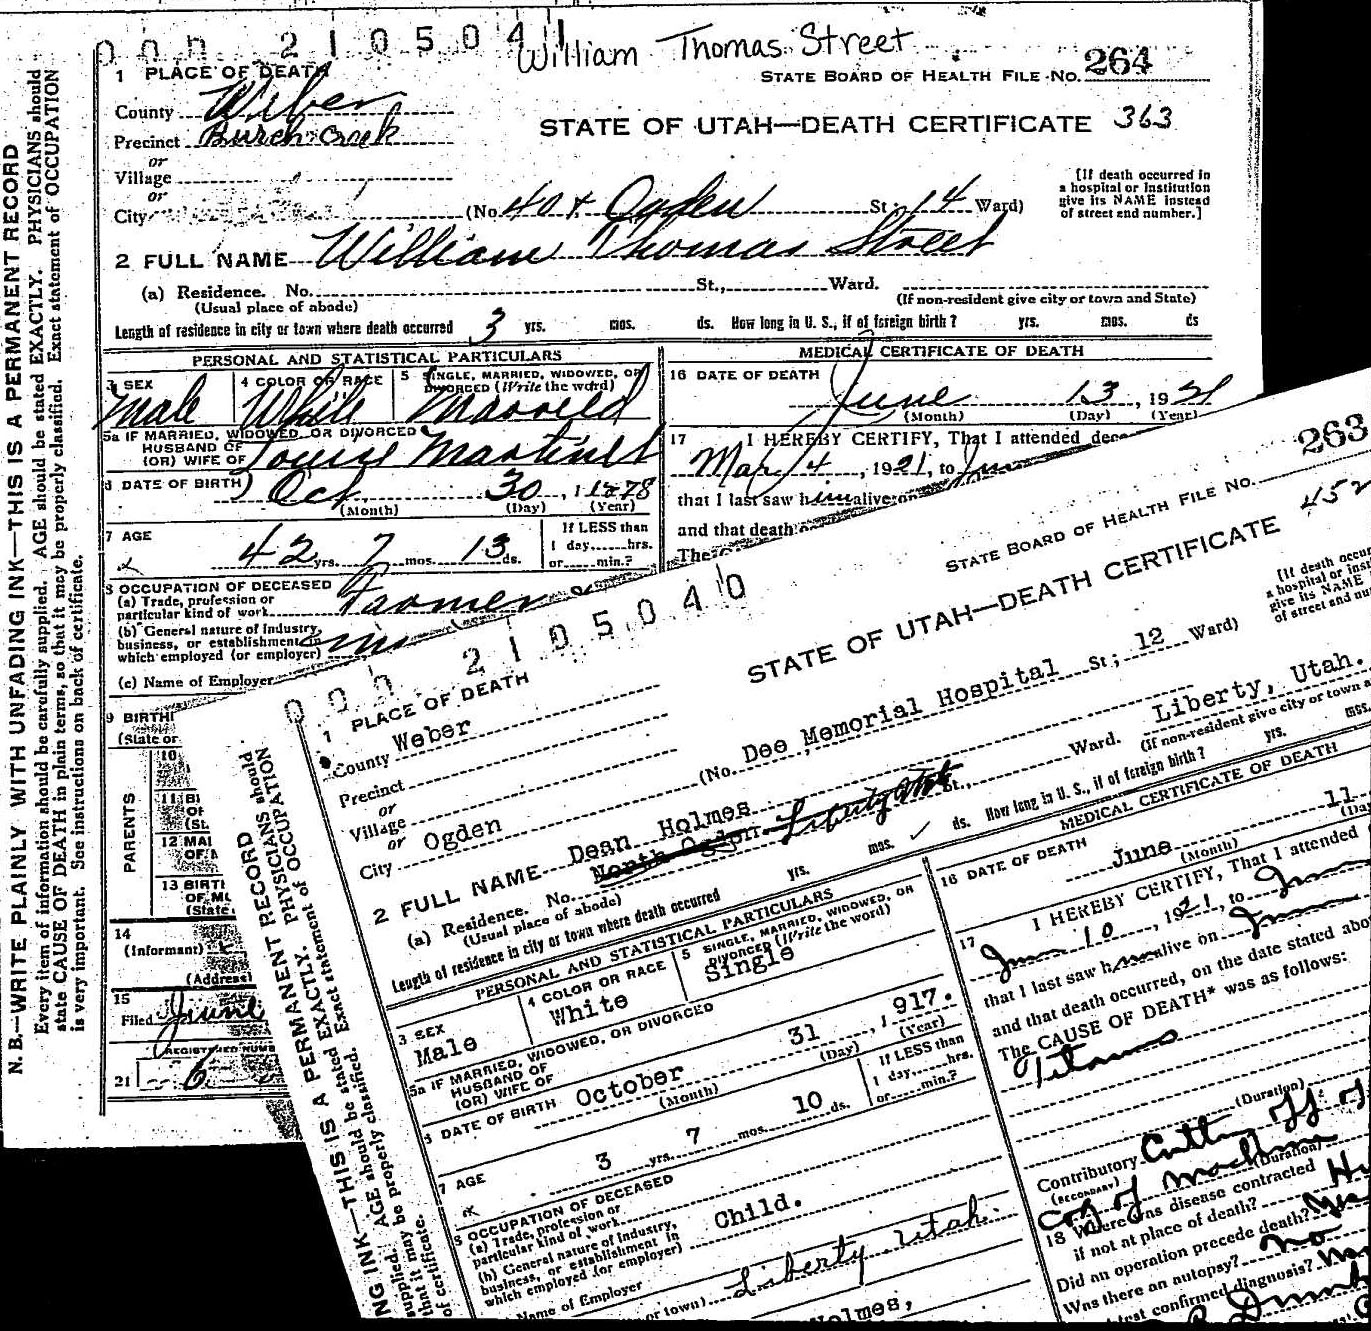 0 0 n 2 1 0 5 0 4 1
William Thomas Street
STATE BOARD OF HEALTH FILE NO. 264
1 PLACE OF DEATH
County Weber
STATE OF UTAH—DEATH CERTIFICATE 363
Precinct Burch Creek
or
Village
or
City
(No. 40 + Ogden St; 14 Ward)
[If death occurred in
a hospital or institution
give its NAME instead
of street and number.]
2 FULL NAME William Thomas Street
(a) Residence. No. St., Ward.
(Usual place of abode)
(If non-resident give city or town and State)
Length of residence in city or town where death occurred 3 yrs. mos. ds. How long in U. S., if of foreign birth? yrs. mos. ds
PERSONAL AND STATISTICAL PARTICULARS
3 SEX
Male
4 COLOR OR RACE
White
5 SINGLE, MARRIED, WIDOWED, OR
DIVORCED (Write the word)
Married
5a IF MARRIED, WIDOWED, OR DIVORCED
HUSBAND OF
(OR) WIFE OF
Louise
DATE OF BIRTH Oct 30, 1878
(Month) (Day) (Year)
7 AGE
42 yrs. 7 mos. 13 ds.
If LESS than
1 day, hrs.
or min.?
8 OCCUPATION OF DECEASED
(a) Trade, profession or
particular kind of work
Farmer
(b) General nature of Industry,
business, or establishment in
which employed (or employer)
(c) Name of Employer
9 BIRTH
(State or
PARENTS
10
11 BI
OF
(St
12 MAI
OF
13 BIRT
OF M
(State
14
(Informant)
(Address)
15
Filed June
(REGISTERED NUMB
21 6
MEDICAL CERTIFICATE OF DEATH
16 DATE OF DEATH
June 13, 1921
(Month) (Day) (Year)
17 I HEREBY CERTIFY, That I attended dece
Mar 14, 1921, to
that I last saw him alive on
and that death
The
N. B.—WRITE PLAINLY WITH UNFADING INK—THIS IS A PERMANENT RECORD
Every item of information should be carefully supplied. AGE should be stated EXACTLY. PHYSICIANS should
state CAUSE OF DEATH in plain terms, so that it may be properly classified. Exact statement of OCCUPATION
is very important. See instructions on back of certificate.
0 0 n 2 1 0 5 0 4 0
263
STATE BOARD OF HEALTH FILE NO.
452
1 PLACE OF DEATH
County Weber
STATE OF UTAH—DEATH CERTIFICATE
Precinct
or
Village
or
City Ogden
(No. Dee Memorial Hospital St; 12 Ward)
[If death occur
a hospital or inst
give its NAME
of street and nu
2 FULL NAME Dean Holmes
(a) Residence. No. North Ogden Liberty Utah St., Ward. Liberty, Utah.
(Usual place of abode)
(If non-resident give city or town a
Length of residence in city or town where death occurred yrs. mos. ✓ ds. How long in U. S., if of foreign birth? yrs. mos.
PERSONAL AND STATISTICAL PARTICULARS
3 SEX
Male
4 COLOR OR RACE
White
5 SINGLE, MARRIED, WIDOWED, OR
DIVORCED (Write the word)
Single
5a IF MARRIED, WIDOWED, OR DIVORCED
HUSBAND OF
(OR) WIFE OF
DATE OF BIRTH October 31, 1917.
(Month) (Day) (Year)
7 AGE
3 yrs. 7 mos. 10 ds.
If LESS than
1 day, hrs.
or min.?
8 OCCUPATION OF DECEASED
(a) Trade, profession or
particular kind of work
Child.
(b) General nature of Industry,
business, or establishment in
which employed (or employer)
Name of Employer
or town) Liberty Utah.
Holmes,
MEDICAL CERTIFICATE OF DEATH
16 DATE OF DEATH
June 11
(Month) (Da
17 I HEREBY CERTIFY, That I attended
June 10, 1921, to June
that I last saw h alive on June
and that death occurred, on the date stated abo
The CAUSE OF DEATH* was as follows:
Tetanus
(Duration)
Contributory Cutting off of
(SECONDARY)
cog of machine
(Duration)
18 Where was disease contracted
if not at place of death?
Did an operation precede death? yes
Was there an autopsy? no
test confirmed diagnosis?
NG INK—THIS IS A PERMANENT RECORD
supplied. AGE should be stated EXACTLY. PHYSICIANS should
that it may be properly classified. Exact statement of OCCUPATION
of certificate.